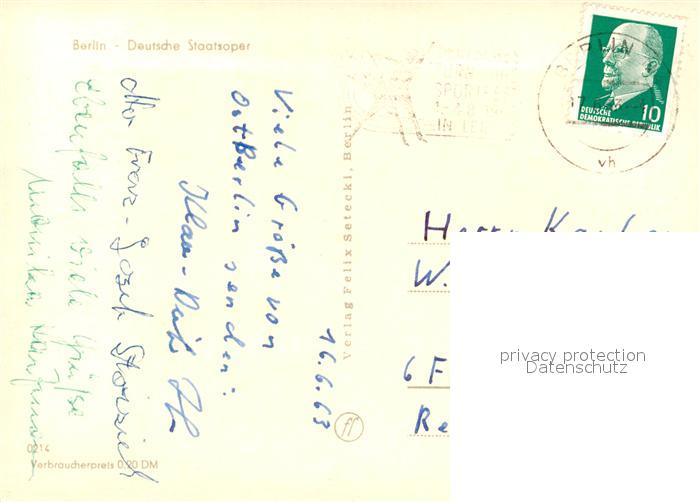 Berlin - Deutsche Staatsoper
SPORTFEST
IN LEIPZIG
BERLIN
vh
10
DEUTSCHE
DEMOKRATISCHE REPUBLIK
Viele Grüße von
Ostberlin senden:
Klaus-
Otto Franz-Josef
Ebenfalls viele Grüße
16.6.63
Verlag Felix Setecki, Berlin
ff
Herrn
W.
6 F
Re
0214
Verbraucherpreis 0,20 DM
privacy protection
Datenschutz